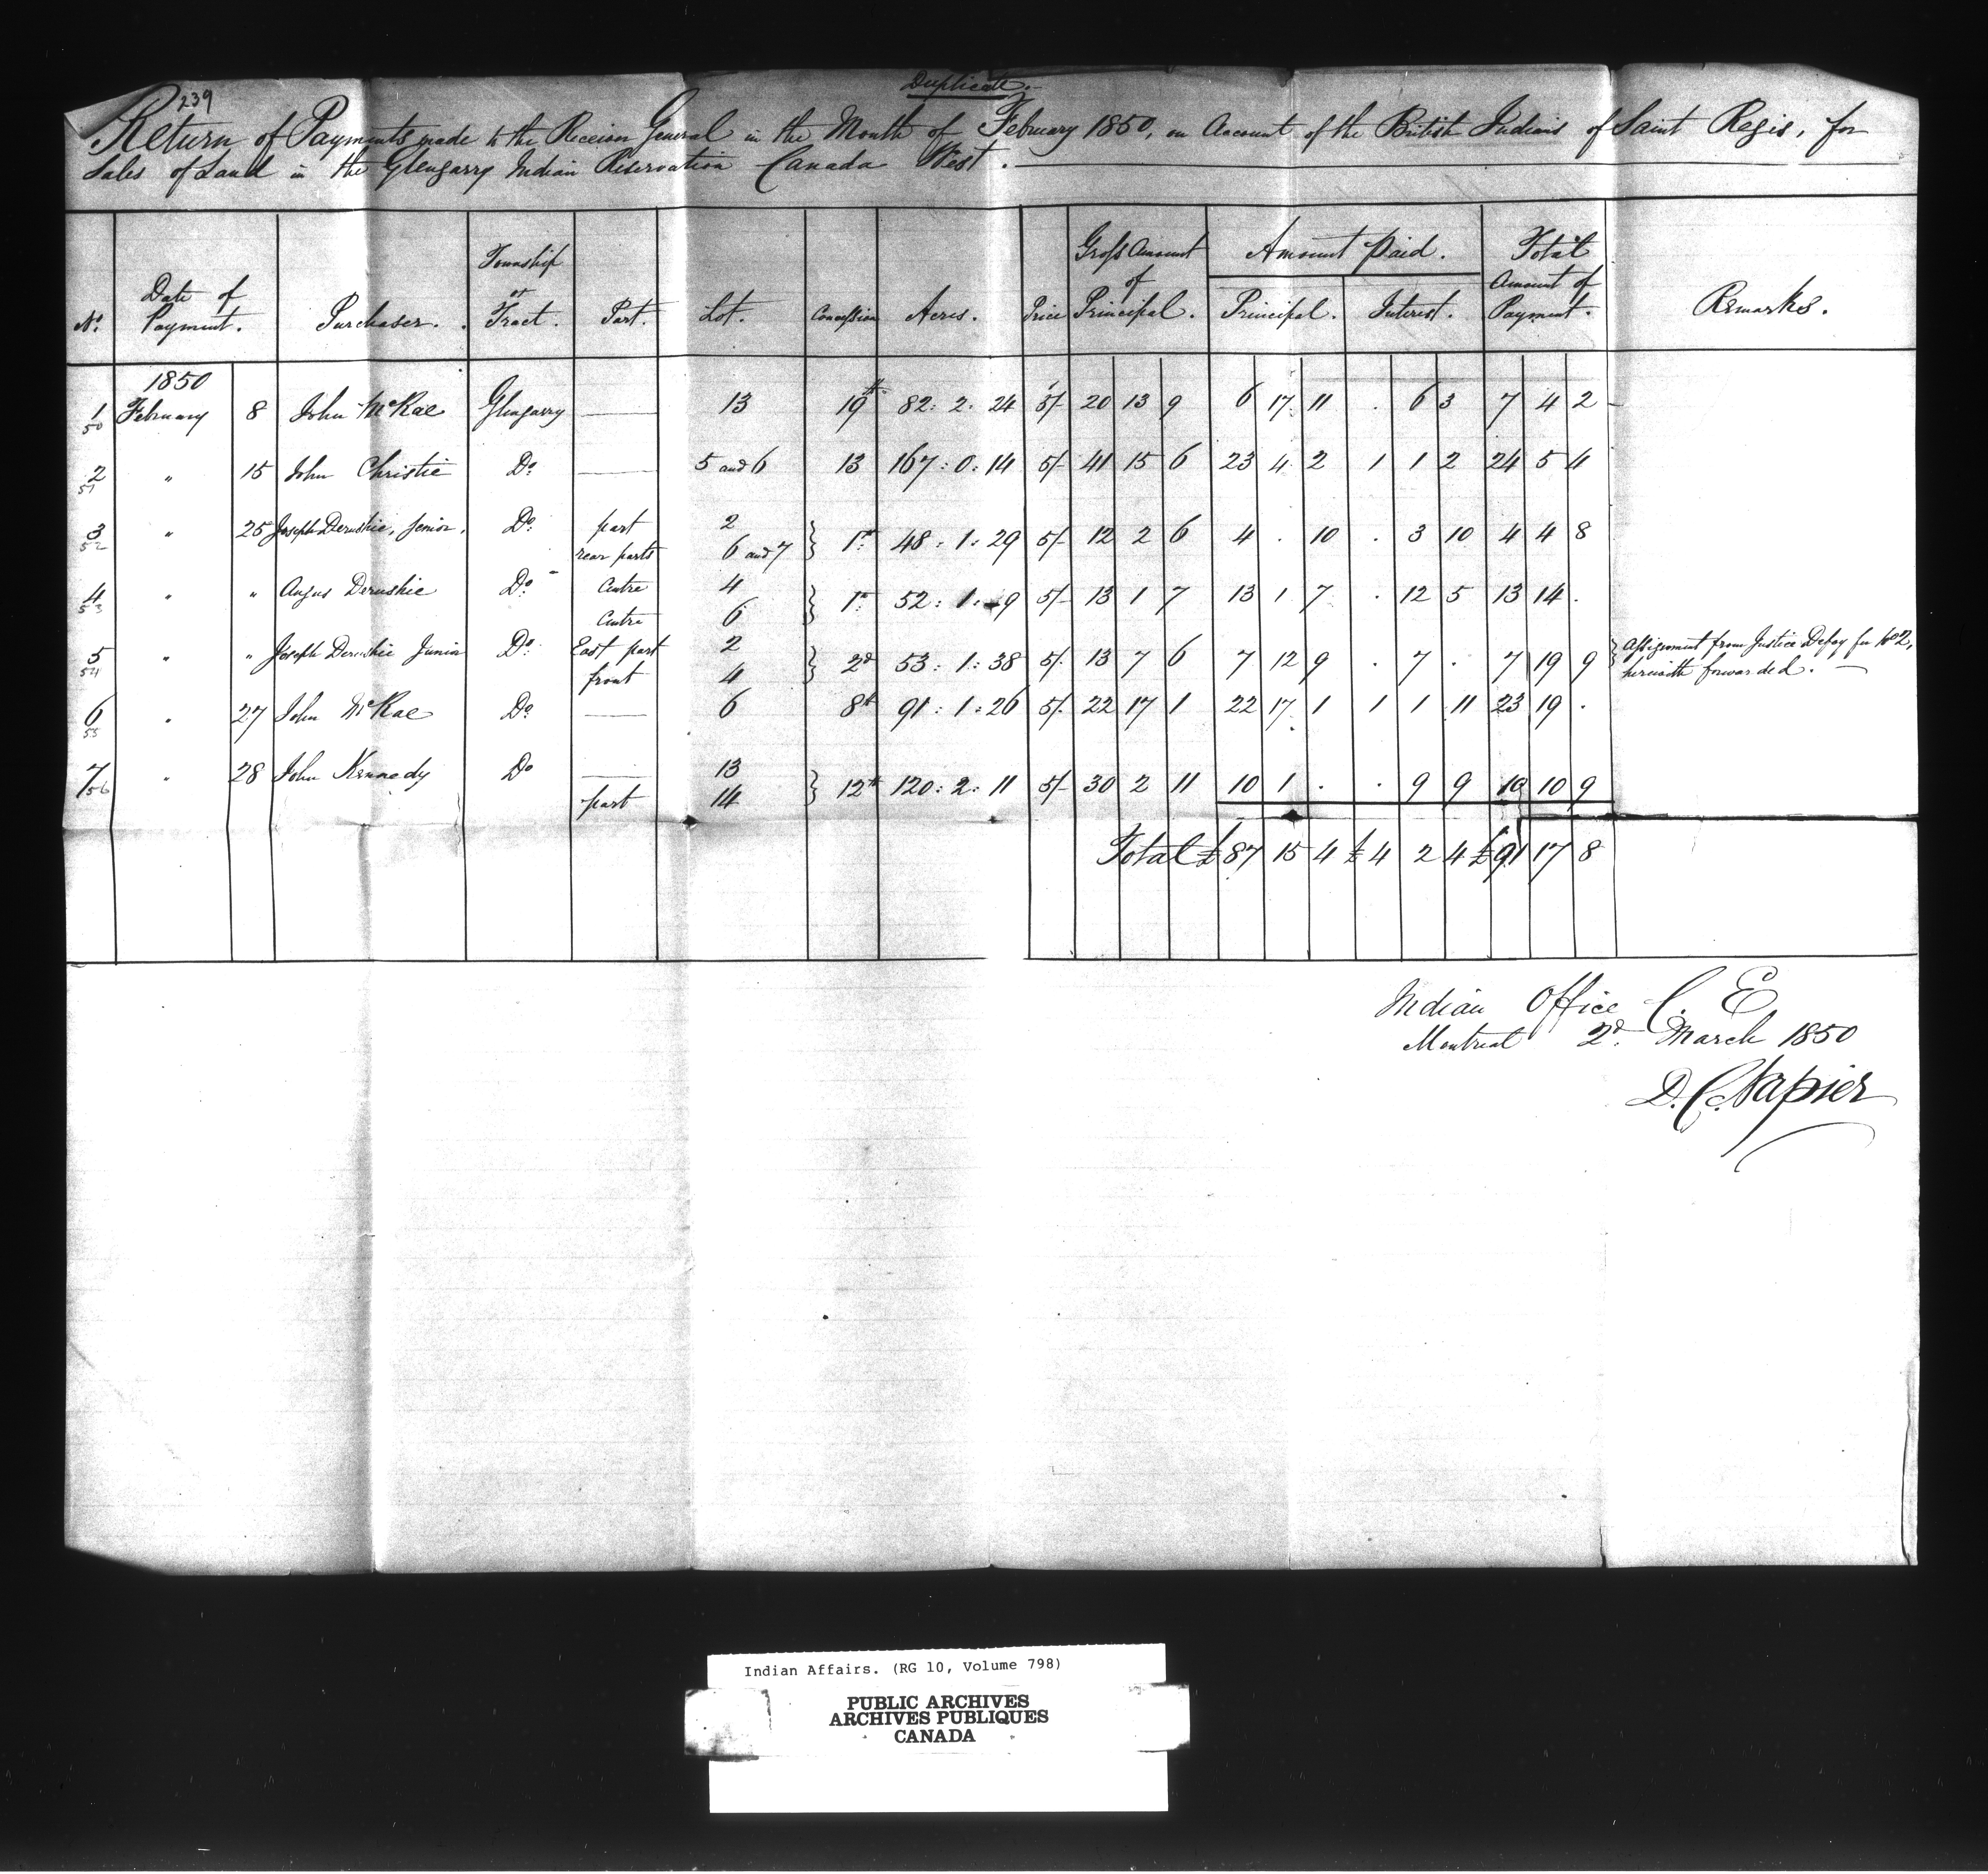 Duplicate.
239
Return of Payments made to the Receiver General in the Month of February 1850, on Account of the British Indians of Saint Regis, for
Sales of Land in the Glengarry Indian Reservation Canada West.
No. Date of Payment. Purchaser. Township or Tract. Part. Lot. Concession Acres. Price Gross Amount of Principal. Amount Paid. Principal. Interest. Total Amount of Payment. Remarks.
1850
1 50 February 8 John McRae Glengarry — 13 19th 82: 2: 24 5/- 20 13 9 6 17 11 . 6 3 7 4 2
2 51 " 15 John Christie Do — 5 and 6 13 167: 0: 14 5/- 41 15 6 23 4 2 1 1 2 24 5 4
3 52 " 25 Joseph Derushie, Senior, Do part 2
rear parts 6 and 7 } 1st 48: 1: 29 5/- 12 2 6 4 . 10 . 3 10 4 4 8
4 53 " " Angus Derushie Do Centre 4
Centre 6 } 1st 52: 1: 9 5/- 13 1 7 13 1 7 . 12 5 13 14 .
5 54 " " Joseph Derushie Junior Do East part 2
front 4 } 2d 53: 1: 38 5/- 13 7 6 7 12 9 . 7 . 7 19 9 } Assignment from Justice Defay for No 2, herewith forwarded. —
6 55 " 27 John McRae Do — 6 8th 91: 1: 26 5/- 22 17 1 22 17 1 1 1 11 23 19 .
7 56 " 28 John Kennedy Do — 13
part 14 } 12th 120: 2: 11 5/- 30 2 11 10 1 . . 9 9 10 10 9
Total £87 15 4 £4 2 4 £91 17 8
Indian Office C. E
Montreal 2d March 1850
D. C. Napier
Indian Affairs. (RG 10, Volume 798)
PUBLIC ARCHIVES
ARCHIVES PUBLIQUES
CANADA